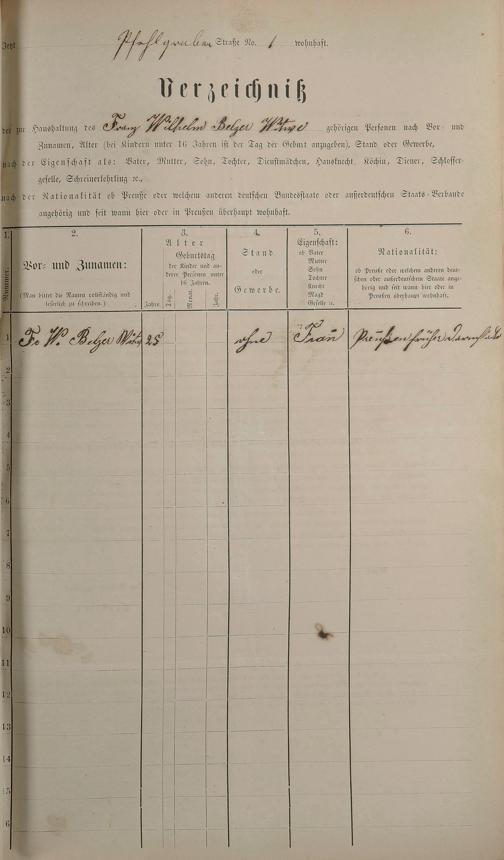 Jetzt Pfahlgraben Straße No. 1 wohnhaft.
Verzeichniß
der zur Haushaltung des Franz Wilhelm Belzer Witwe gehörigen Personen nach Vor- und
Zunamen, Alter (bei Kindern unter 16 Jahren ist der Tag der Geburt anzugeben), Stand oder Gewerbe,
nach der Eigenschaft als: Vater, Mutter, Sohn, Tochter, Dienstmädchen, Hausknecht, Köchin, Diener, Schlosser-
geselle, Schreinerlehrling ꝛc.,
nach der Nationalität ob Preuße oder welchem anderen deutschen Bundesstaate oder außerdeutschen Staats-Verbande
angehörig und seit wann hier oder in Preußen überhaupt wohnhaft.
1.
Nummer.
2.
Vor- und Zunamen:
(Man bittet die Namen vollständig und
leserlich zu schreiben.)
3.
Alter
Geburtstag
der Kinder und an-
derer Personen unter
16 Jahren.
Jahre.
Tag.
Monat.
Jahr.
4.
Stand
oder
Gewerbe.
5.
Eigenschaft:
ob Vater
Mutter
Sohn
Tochter
Knecht
Magd
Geselle u.
6.
Nationalität:
ob Preuße oder welchem anderen deut-
schen oder außerdeutschen Staate ange-
hörig und seit wann hier oder in
Preußen überhaupt wohnhaft.
1 Fr. W. Belzer Witwe 25 ohne Frau Preußen früher
2
3
4
5
6
7
8
9
10
11
12
13
14
15
6